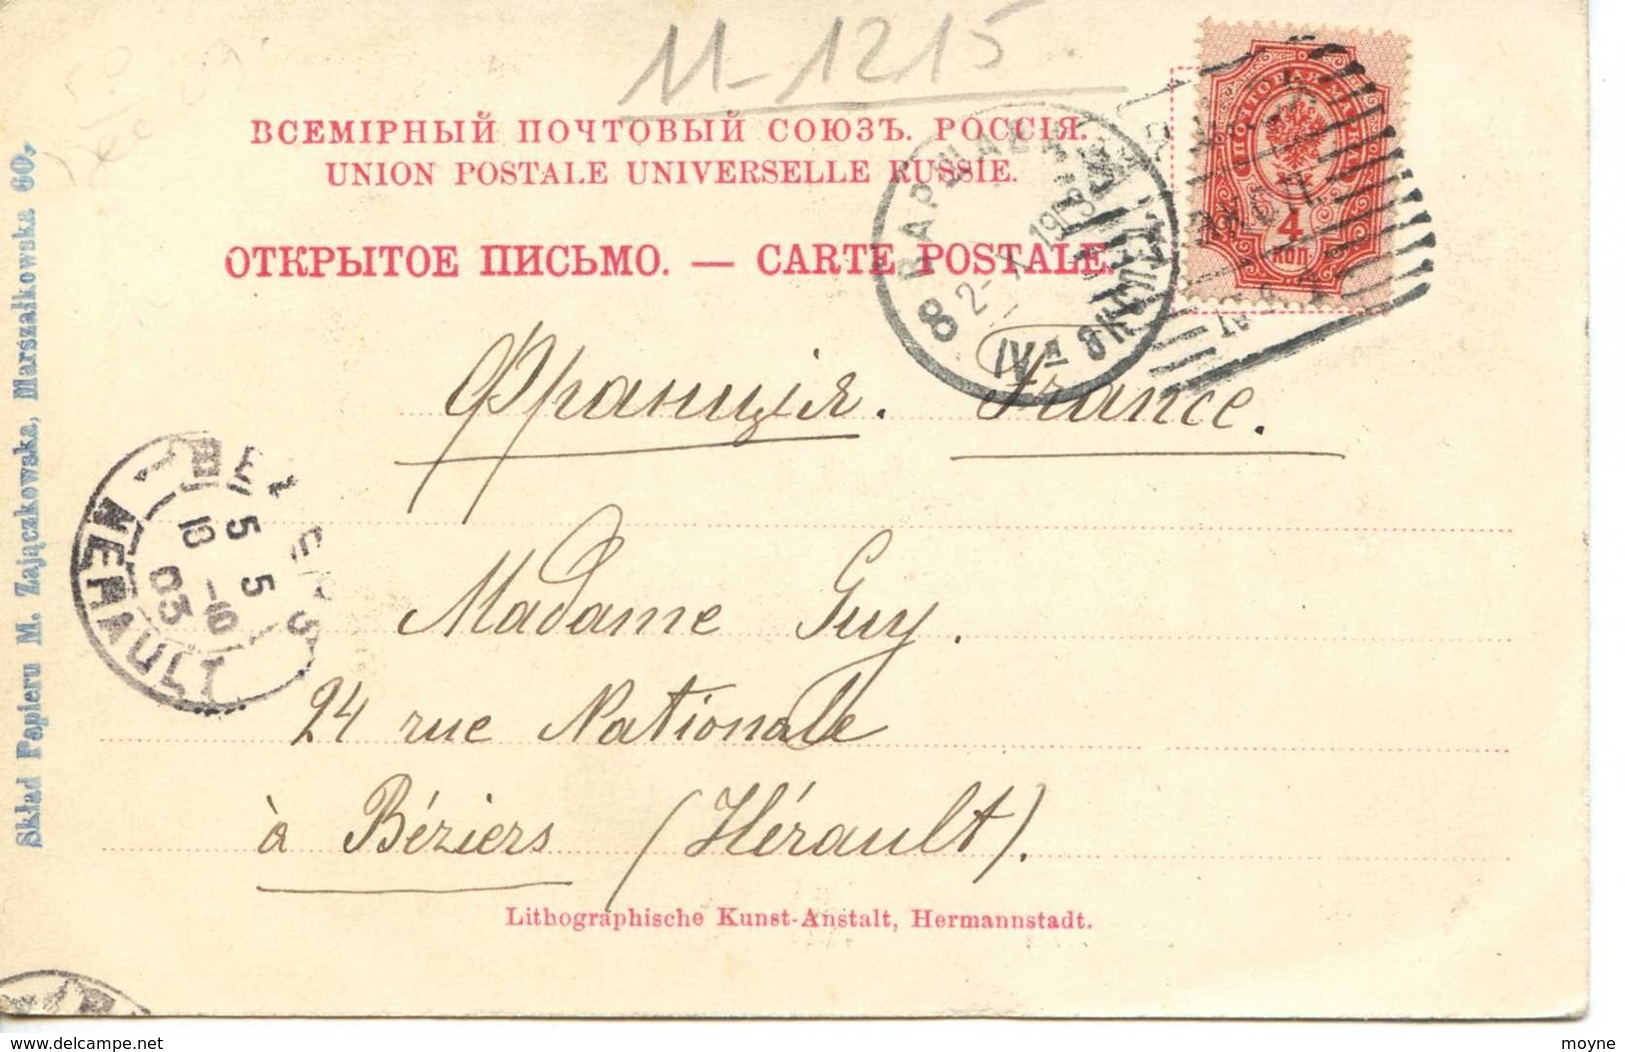 M-1215.
ВСЕМІРНЫЙ ПОЧТОВЫЙ СОЮЗЪ. РОССІЯ.
UNION POSTALE UNIVERSELLE RUSSIE.
ОТКРЫТОЕ ПИСЬМО. — CARTE POSTALE.
ПОЧТОВАЯ МАРКА
4
КОП.
8
1903
Франція. France.
Madame Guy.
24 rue Nationale
à Béziers (Hérault).
Lithographische Kunst-Anstalt, Hermannstadt.
Skład Papieru M. Zajączkowska, Marszałkowska 60.
HERAULT
03
delcampe.net
moyne